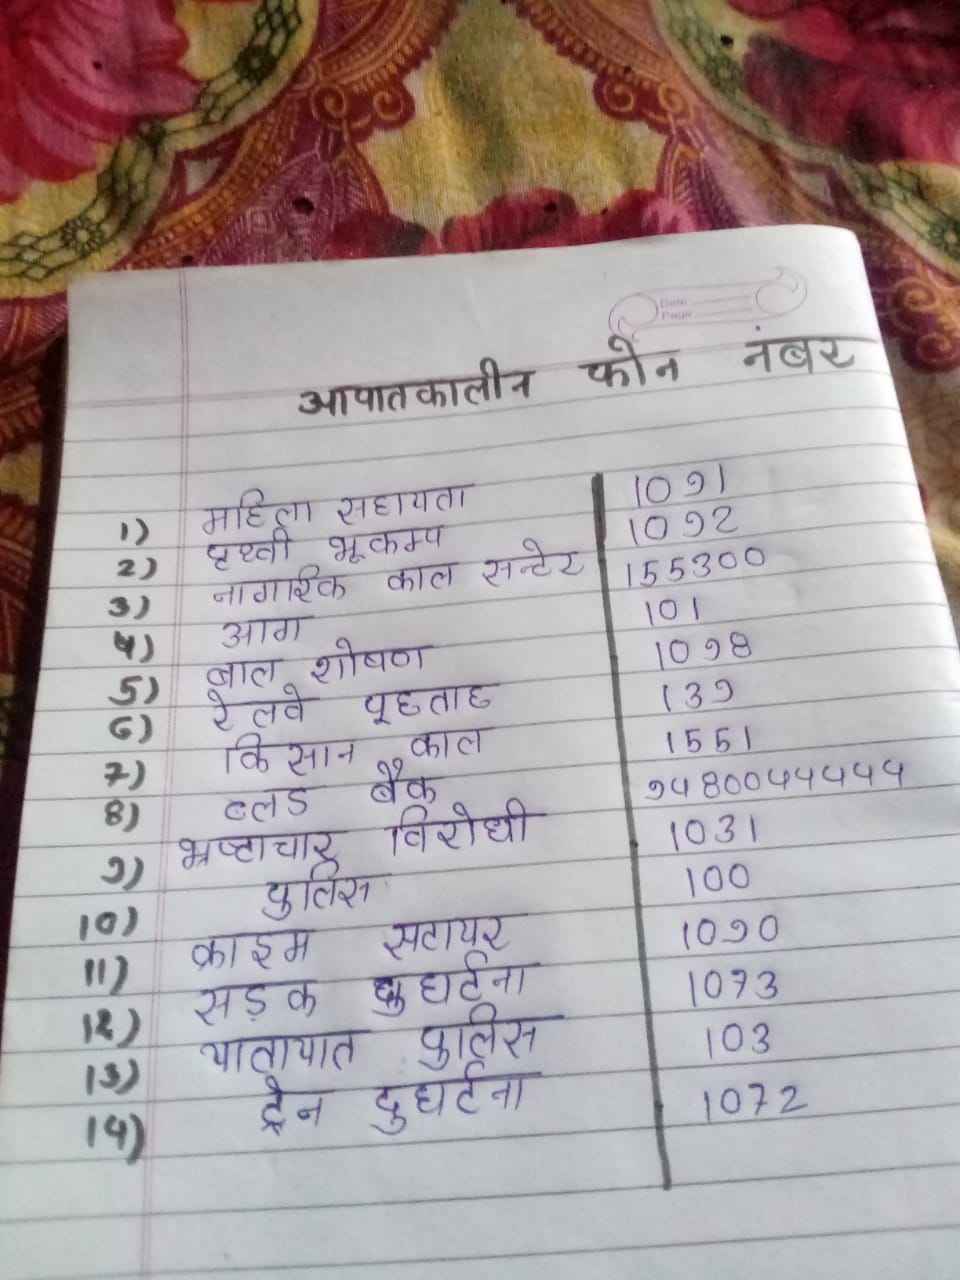 Date
Page
आपातकालीन फोन नंबर
1) महिला सहायता 1091
2) पृथ्वी भूकम्प 1092
3) नागरिक काल सन्टेर 155300
4) आग 101
5) बाल शोषण 1098
6) रेलवे पूछताछ 139
7) किसान काल 1551
8) ब्लड बैंक 9480044444
9) भ्रष्टाचार विरोधी 1031
10) पुलिस 100
11) क्राइम सटायर 1090
12) सड़क दुघर्टना 1073
13) यातायात पुलिस 103
14) ट्रेन दुघर्टना 1072